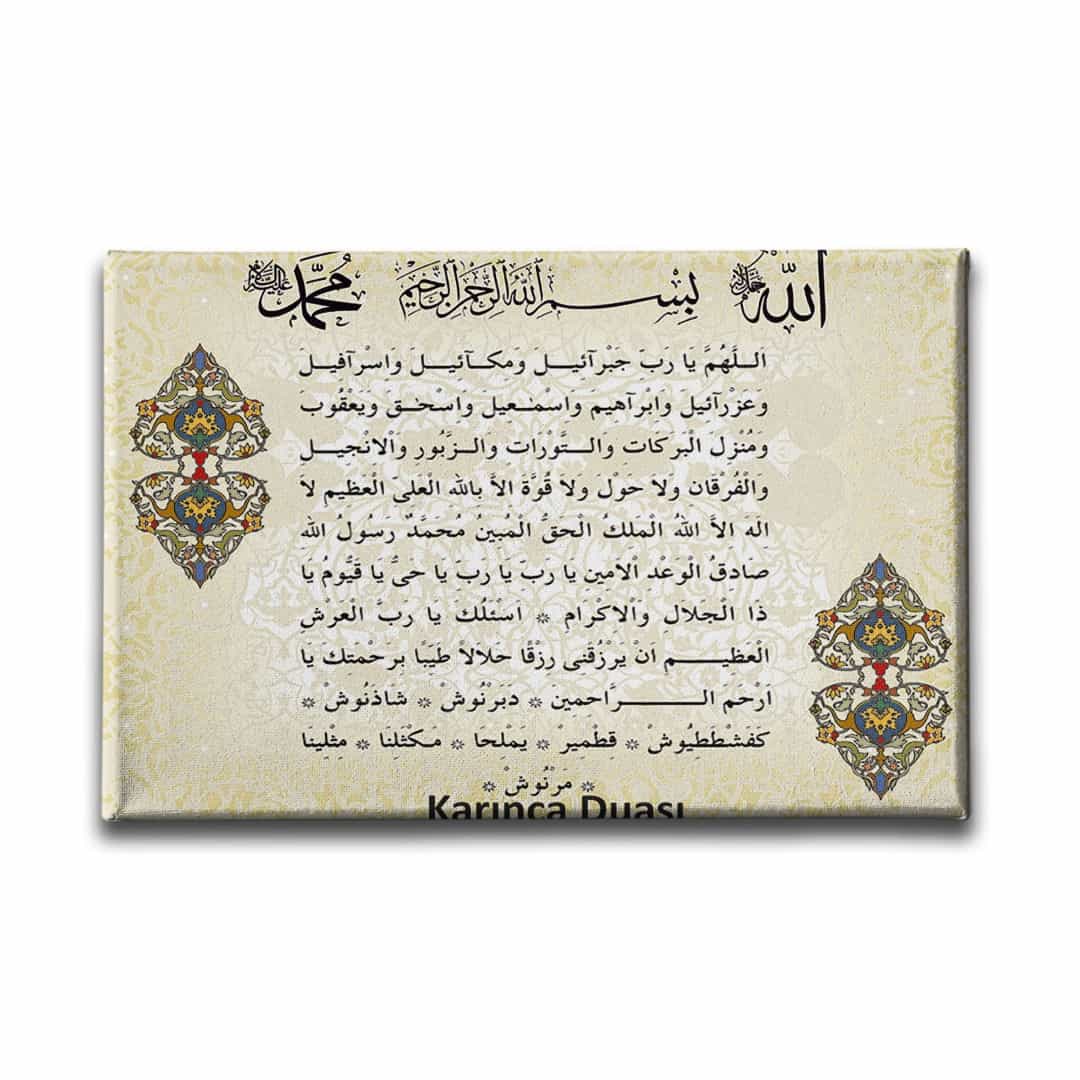 الله جل جلاله
بسم الله الرحمن الرحيم
محمد عليه السلام
اَللَّهُمَّ يَا رَبَّ جَبْرَآئِيلَ وَمِكَآئِيلَ وَاِسْرَآفِيلَ
وَعَزْرَآئِيلَ وَاِبْرَآهِيمَ وَاِسْمٰعِيلَ وَاِسْحٰقَ وَيَعْقُوبَ
وَمُنْزِلَ الْبَرَكَاتِ وَالتَّوْرَاتِ وَالزَّبُورِ وَالْاِنْجِيلِ
وَالْفُرْقَانِ وَلاَ حَوْلَ وَلاَ قُوَّةَ اِلاَّ بِاللهِ الْعَلِىِّ الْعَظِيمِ لاَ
اِلَهَ اِلاَّ اللهُ الْمَلِكُ الْحَقُّ الْمُبِينُ مُحَمَّدٌ رَسُولُ اللهِ
صَادِقُ الْوَعْدِ اْلاَمِينِ يَا رَبِّ يَا رَبِّ يَا حَىُّ يَا قَيُّومُ يَا
ذَا الْجَلاَلِ وَاْلاِكْرَامِ ۞ اَسْئَلُكَ يَا رَبَّ الْعَرْشِ
الْعَظِيمِ اَنْ يَرْزُقَنِى رِزْقًا حَلاَلاً طَيِّبًا بِرَحْمَتِكَ يَا
اَرْحَمَ الرَّاحِمِينَ ۞ دَبَرْنُوشْ ۞ شَاذَنُوشْ ۞
كَفَشْطَطَيُوشْ ۞ قِطْمِيرْ ۞ يَمْلِحَا ۞ مَكْثَلِنَا ۞ مِثْلِينَا
۞ مَرْنُوشْ ۞
Karınca Duası